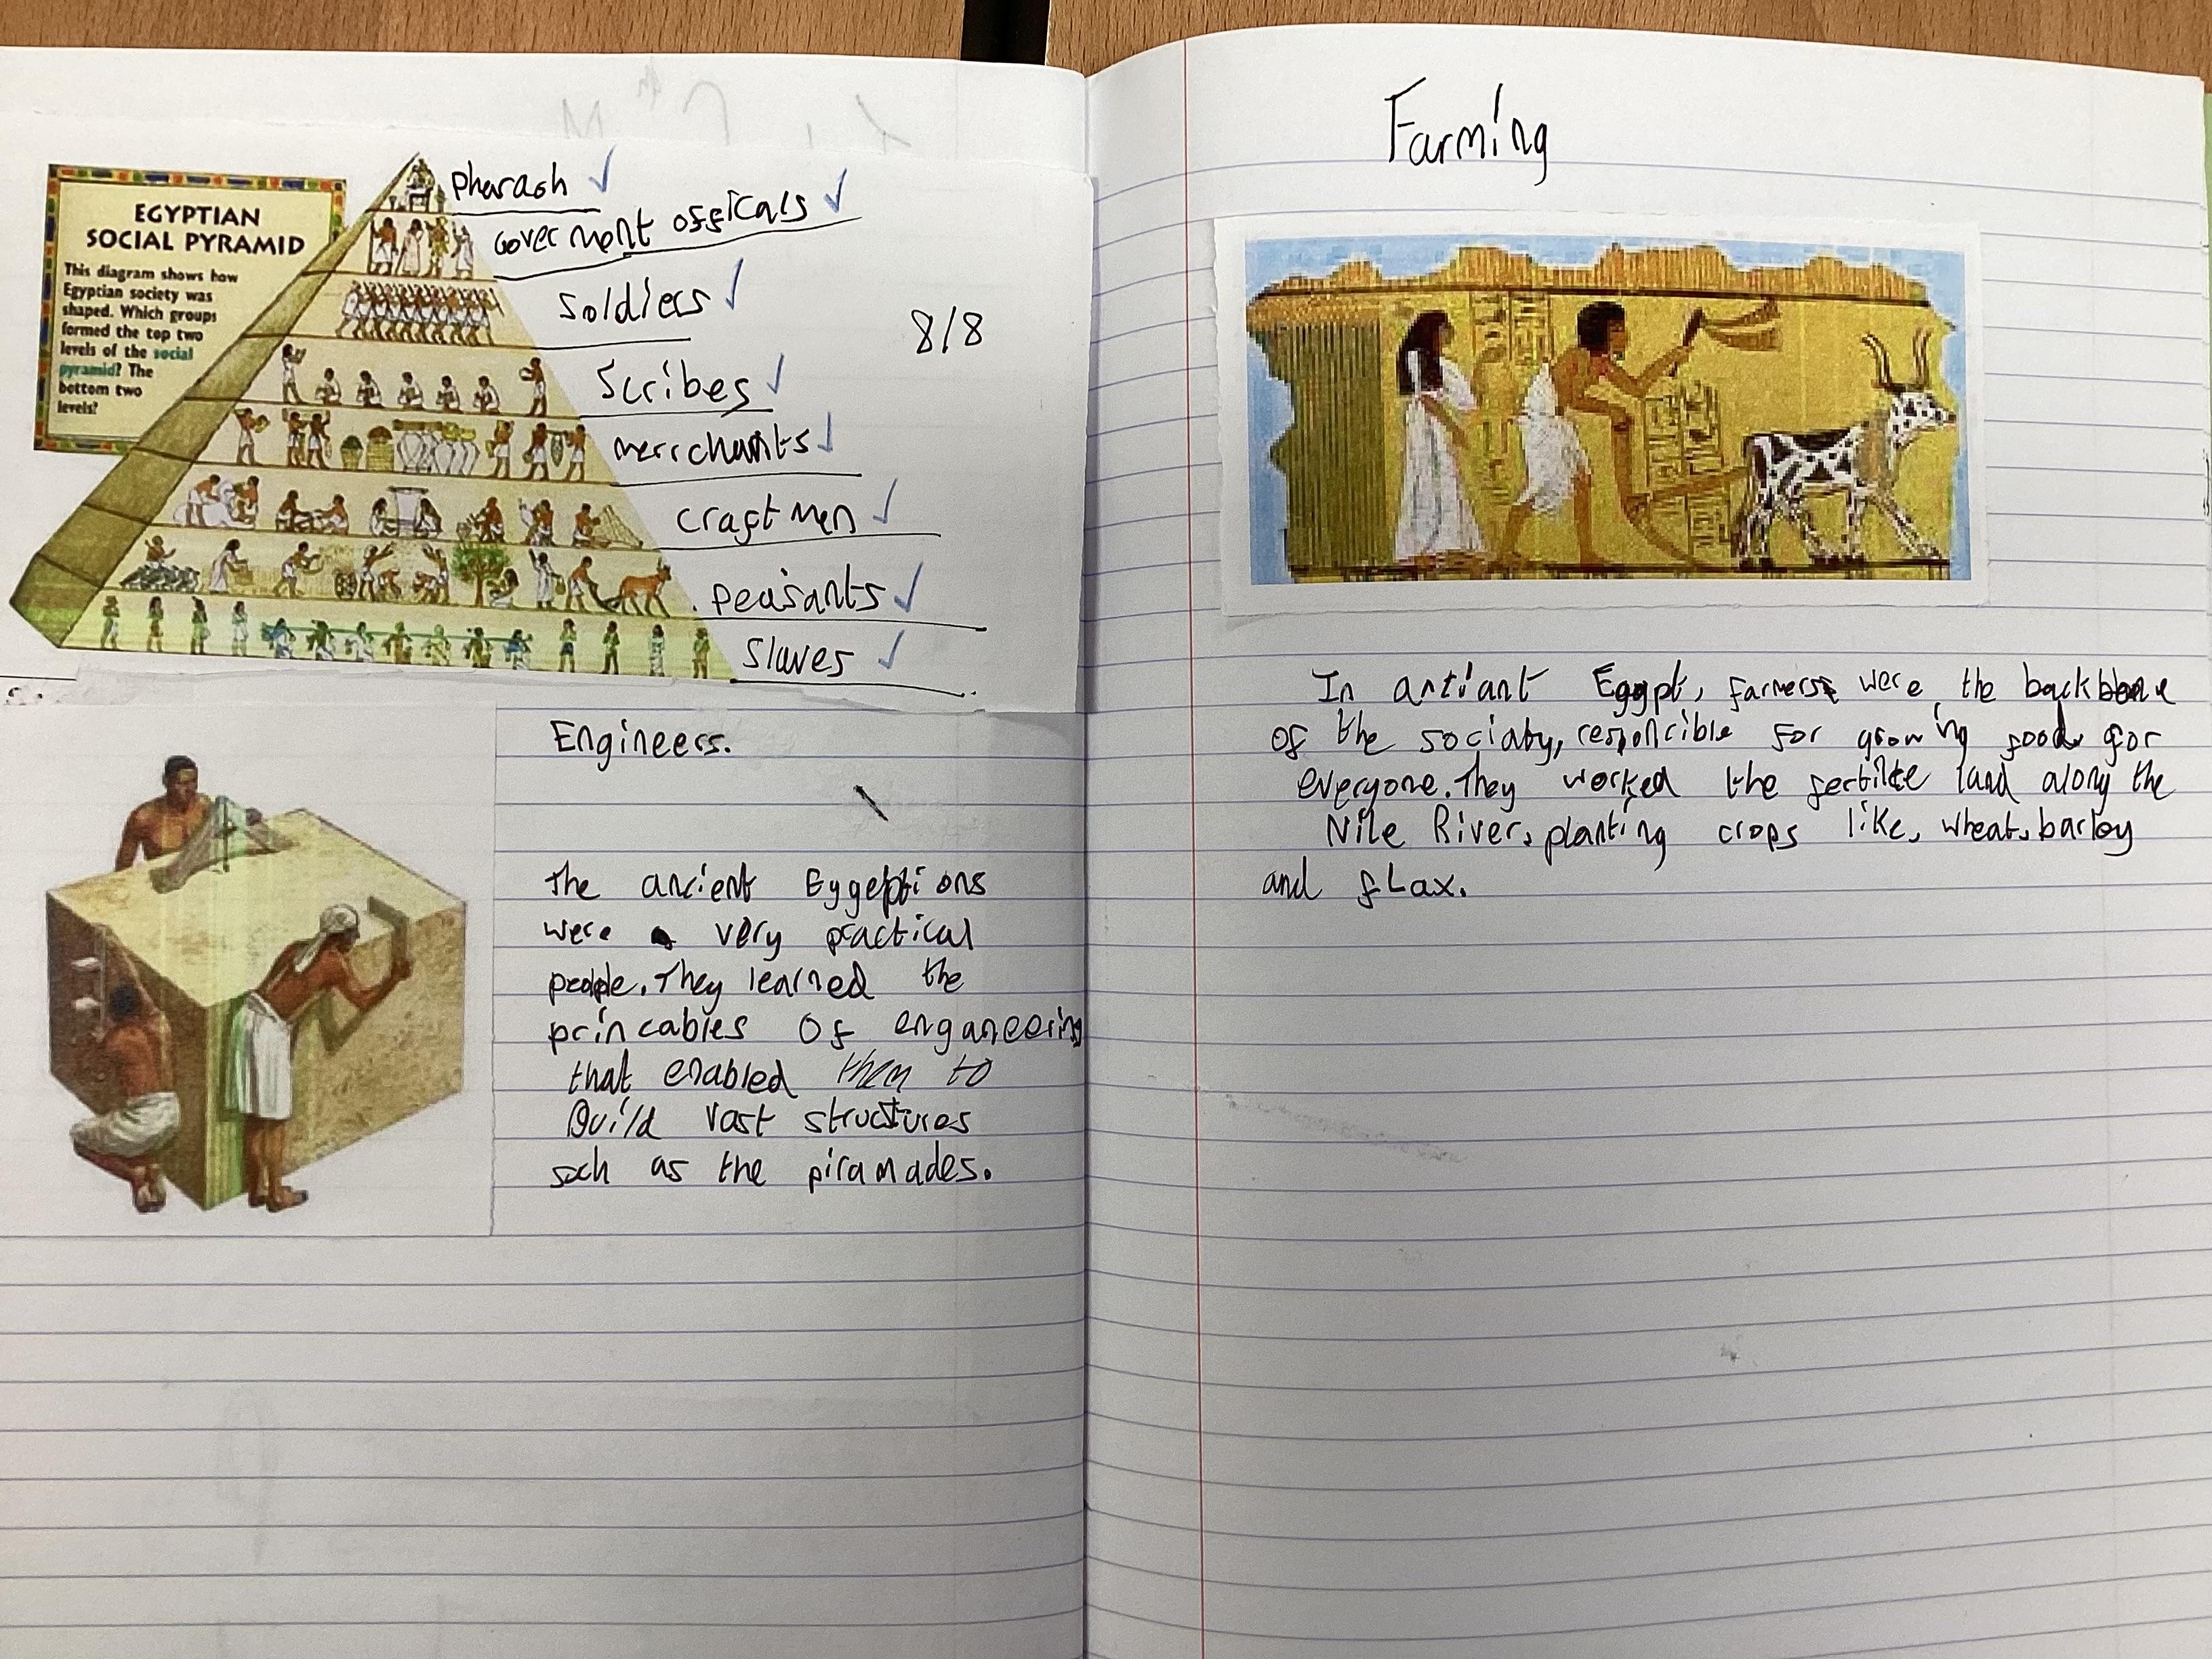 EGYPTIAN
SOCIAL PYRAMID
This diagram shows how
Egyptian society was
shaped. Which groups
formed the top two
levels of the social
pyramid? The
bottom two
levels?
Pharaoh
Goverment officals
Soldiers
8/8
Scribes
merrchants
craftmen
peasants
Slaves
Engineers.
The ancient Eygeptions
were very practical
people. They learned the
princables of enganeering
that enabled them to
Build vast structures
such as the piramades.
Farming
In antiant Egypt, farmers were the backbone
of the sociaty, responcible for growing food for
everyone. They worked the fertile land along the
Nile River, planting crops like, wheat, barley
and fLax.